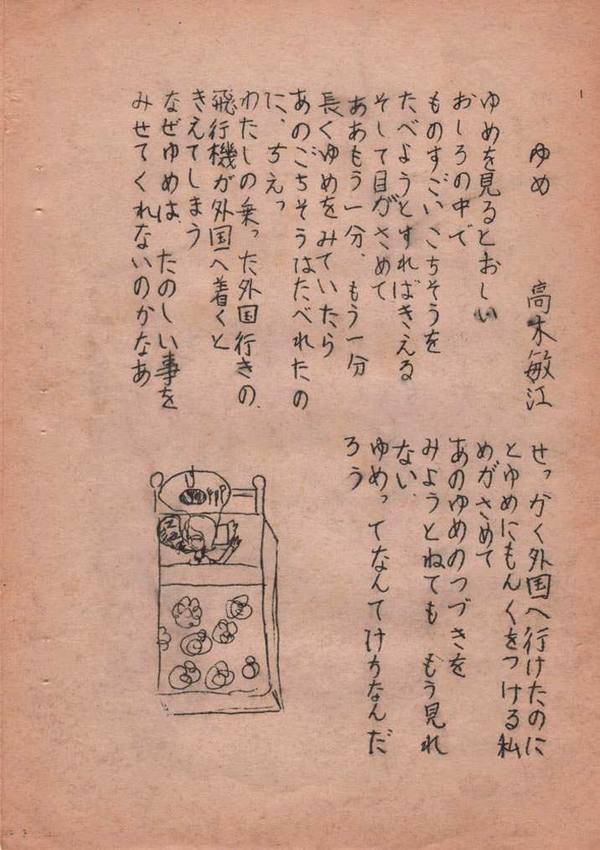 ゆめ
高木敏江
ゆめを見るとおしい
おしろの中で
ものすごいごちそうを
たべようとすればきえる
そして目がさめて
ああもう一分、もう一分
長くゆめをみていたら
あのごちそうはたべれたの
に、ちえっ
わたしの乗った外国行きの
飛行機が外国へ着くと
きえてしまう
なぜゆめは、たのしい事を
みせてくれないのかなあ
せっかく外国へ行けたのに
とゆめにもんくをつける私
めがさめて
あのゆめのつづきを
みようとねても もう見れ
ない、
ゆめってなんてけちなんだ
ろう